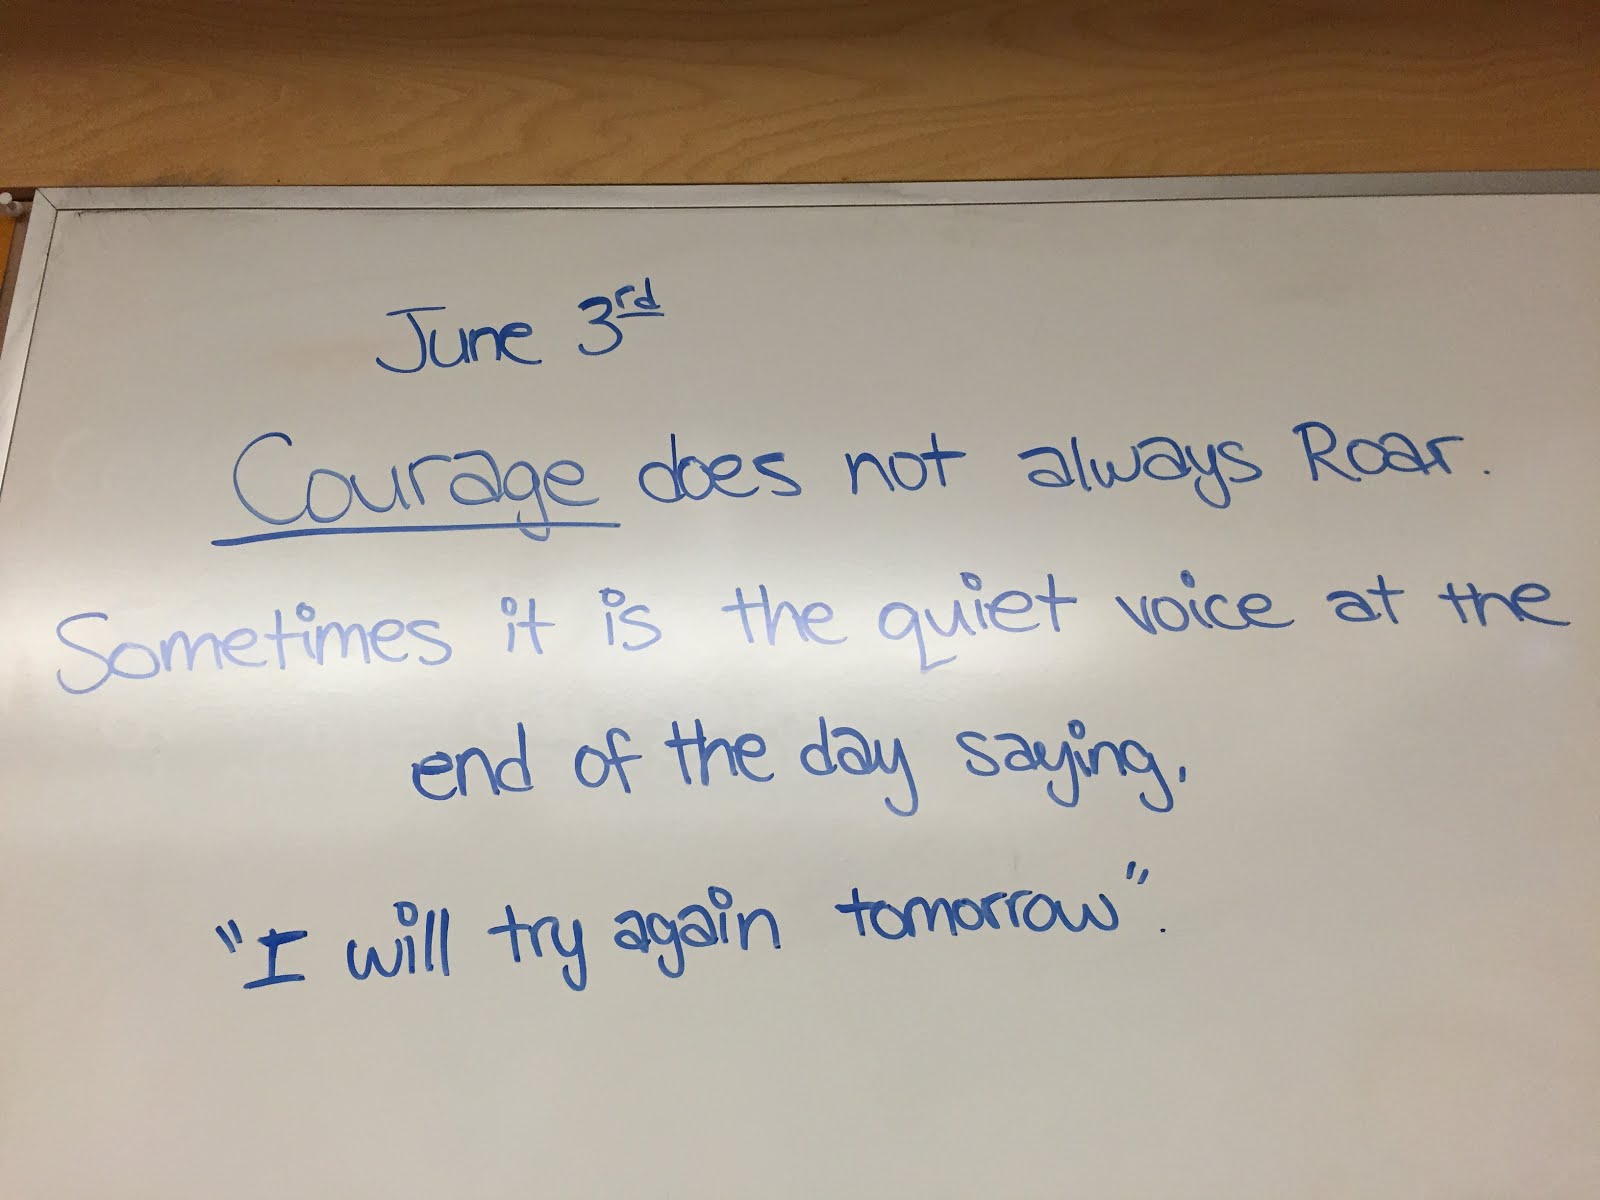 June 3rd
Courage does not always Roar.
Sometimes it is the quiet voice at the
end of the day saying,
"I will try again tomorrow".